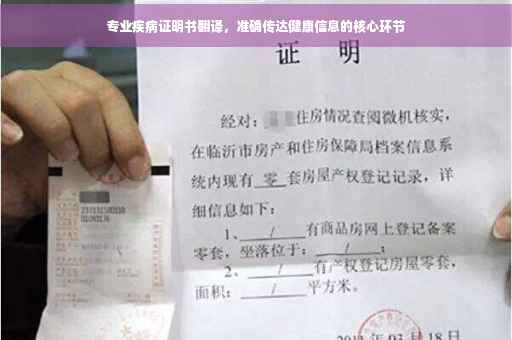 专业疾病证明书翻译，准确传达健康信息的核心环节
证 明
经对：住房情况查阅微机核实，
在临沂市房产和住房保障局档案信息系
统内现有 零 套房屋产权登记记录，详
细信息如下：
1、 / 有商品房网上登记备案
零套，坐落位于： / ；
2、 / 有产权登记房屋零套，
面积： / 平方米。
03 月 18 日